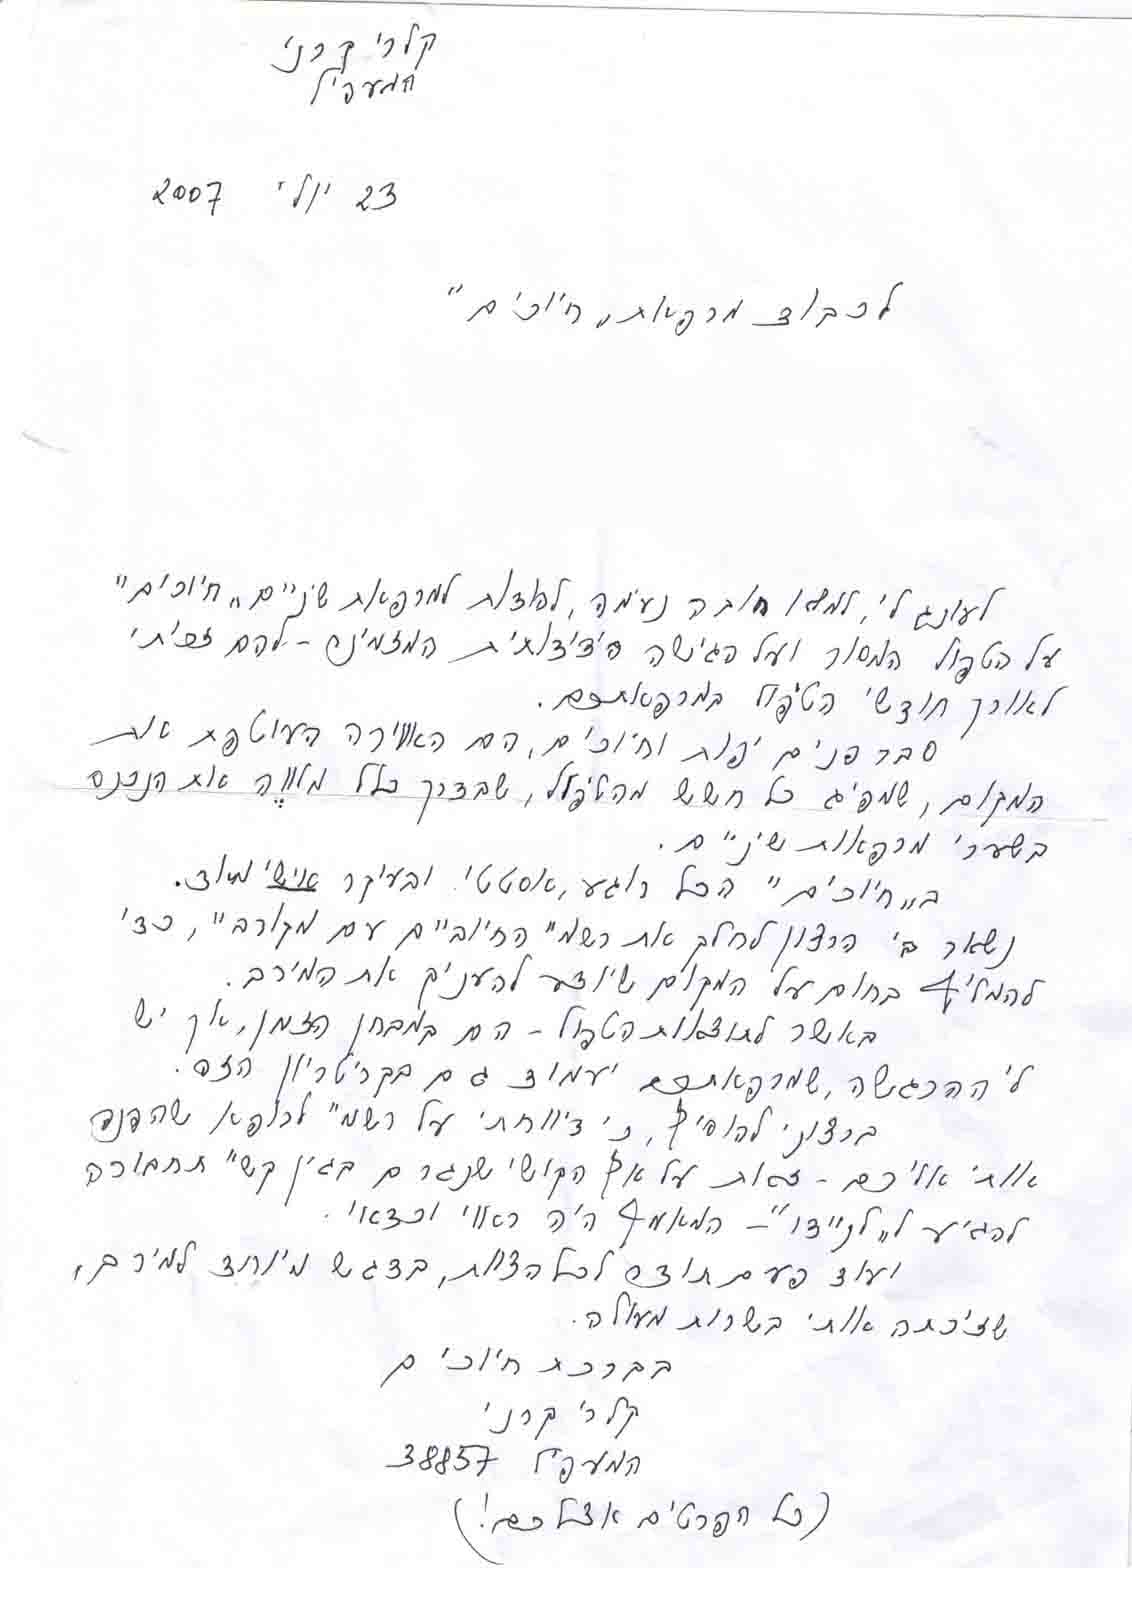 קלרי קרני
המעפיל
23 יולי 2007
לכבוד מרפאת „חיוכים"
לעונג לי, ולמעשה חובה נעימה, להודות למרפאת שיניים „חיוכים"
על הטפול המסור ועל הגישה הידידותית המזמינה - להם זכיתי
לאורך חודשי הטיפול במרפאתכם.
סבר פנים יפות וחיוכים, הם האווירה העוטפת את
המקום, שמפיג כל חשש מהטיפול, שבדרך כלל מלווה את הנכנס
בשערי מרפאות שיניים.
ב„חיוכים" הכל רוגע, אסטטי ובעיקר אישי מאוד.
נשאר בי הרצון לחלק את רשמיי החיוביים עם מקורביי, כדי
להמליץ בחום על המקום שיודע להעניק את המירב.
באשר לתוצאות הטפול - הם במבחן הזמן, אך יש
לי ההרגשה, שמרפאתכם יעמוד גם בקריטריון הזה.
ברצוני להוסיף, כי דיווחתי על רשמיי לרופא שהפנה
אותי אליכם - זאת על אף הקושי שנגרם בגין קשיי תחבורה
להגיע ל„לניידו" - המאמץ היה ראוי וכדאי.
ועוד פעם תודה לכל הצוות, בדגש מיוחד למירב,
שזיכתה אותי בשרות מעולה.
בברכת חיוכים
קלרי קרני
המעפיל 38857
(כל הפרטים אצלכם!)